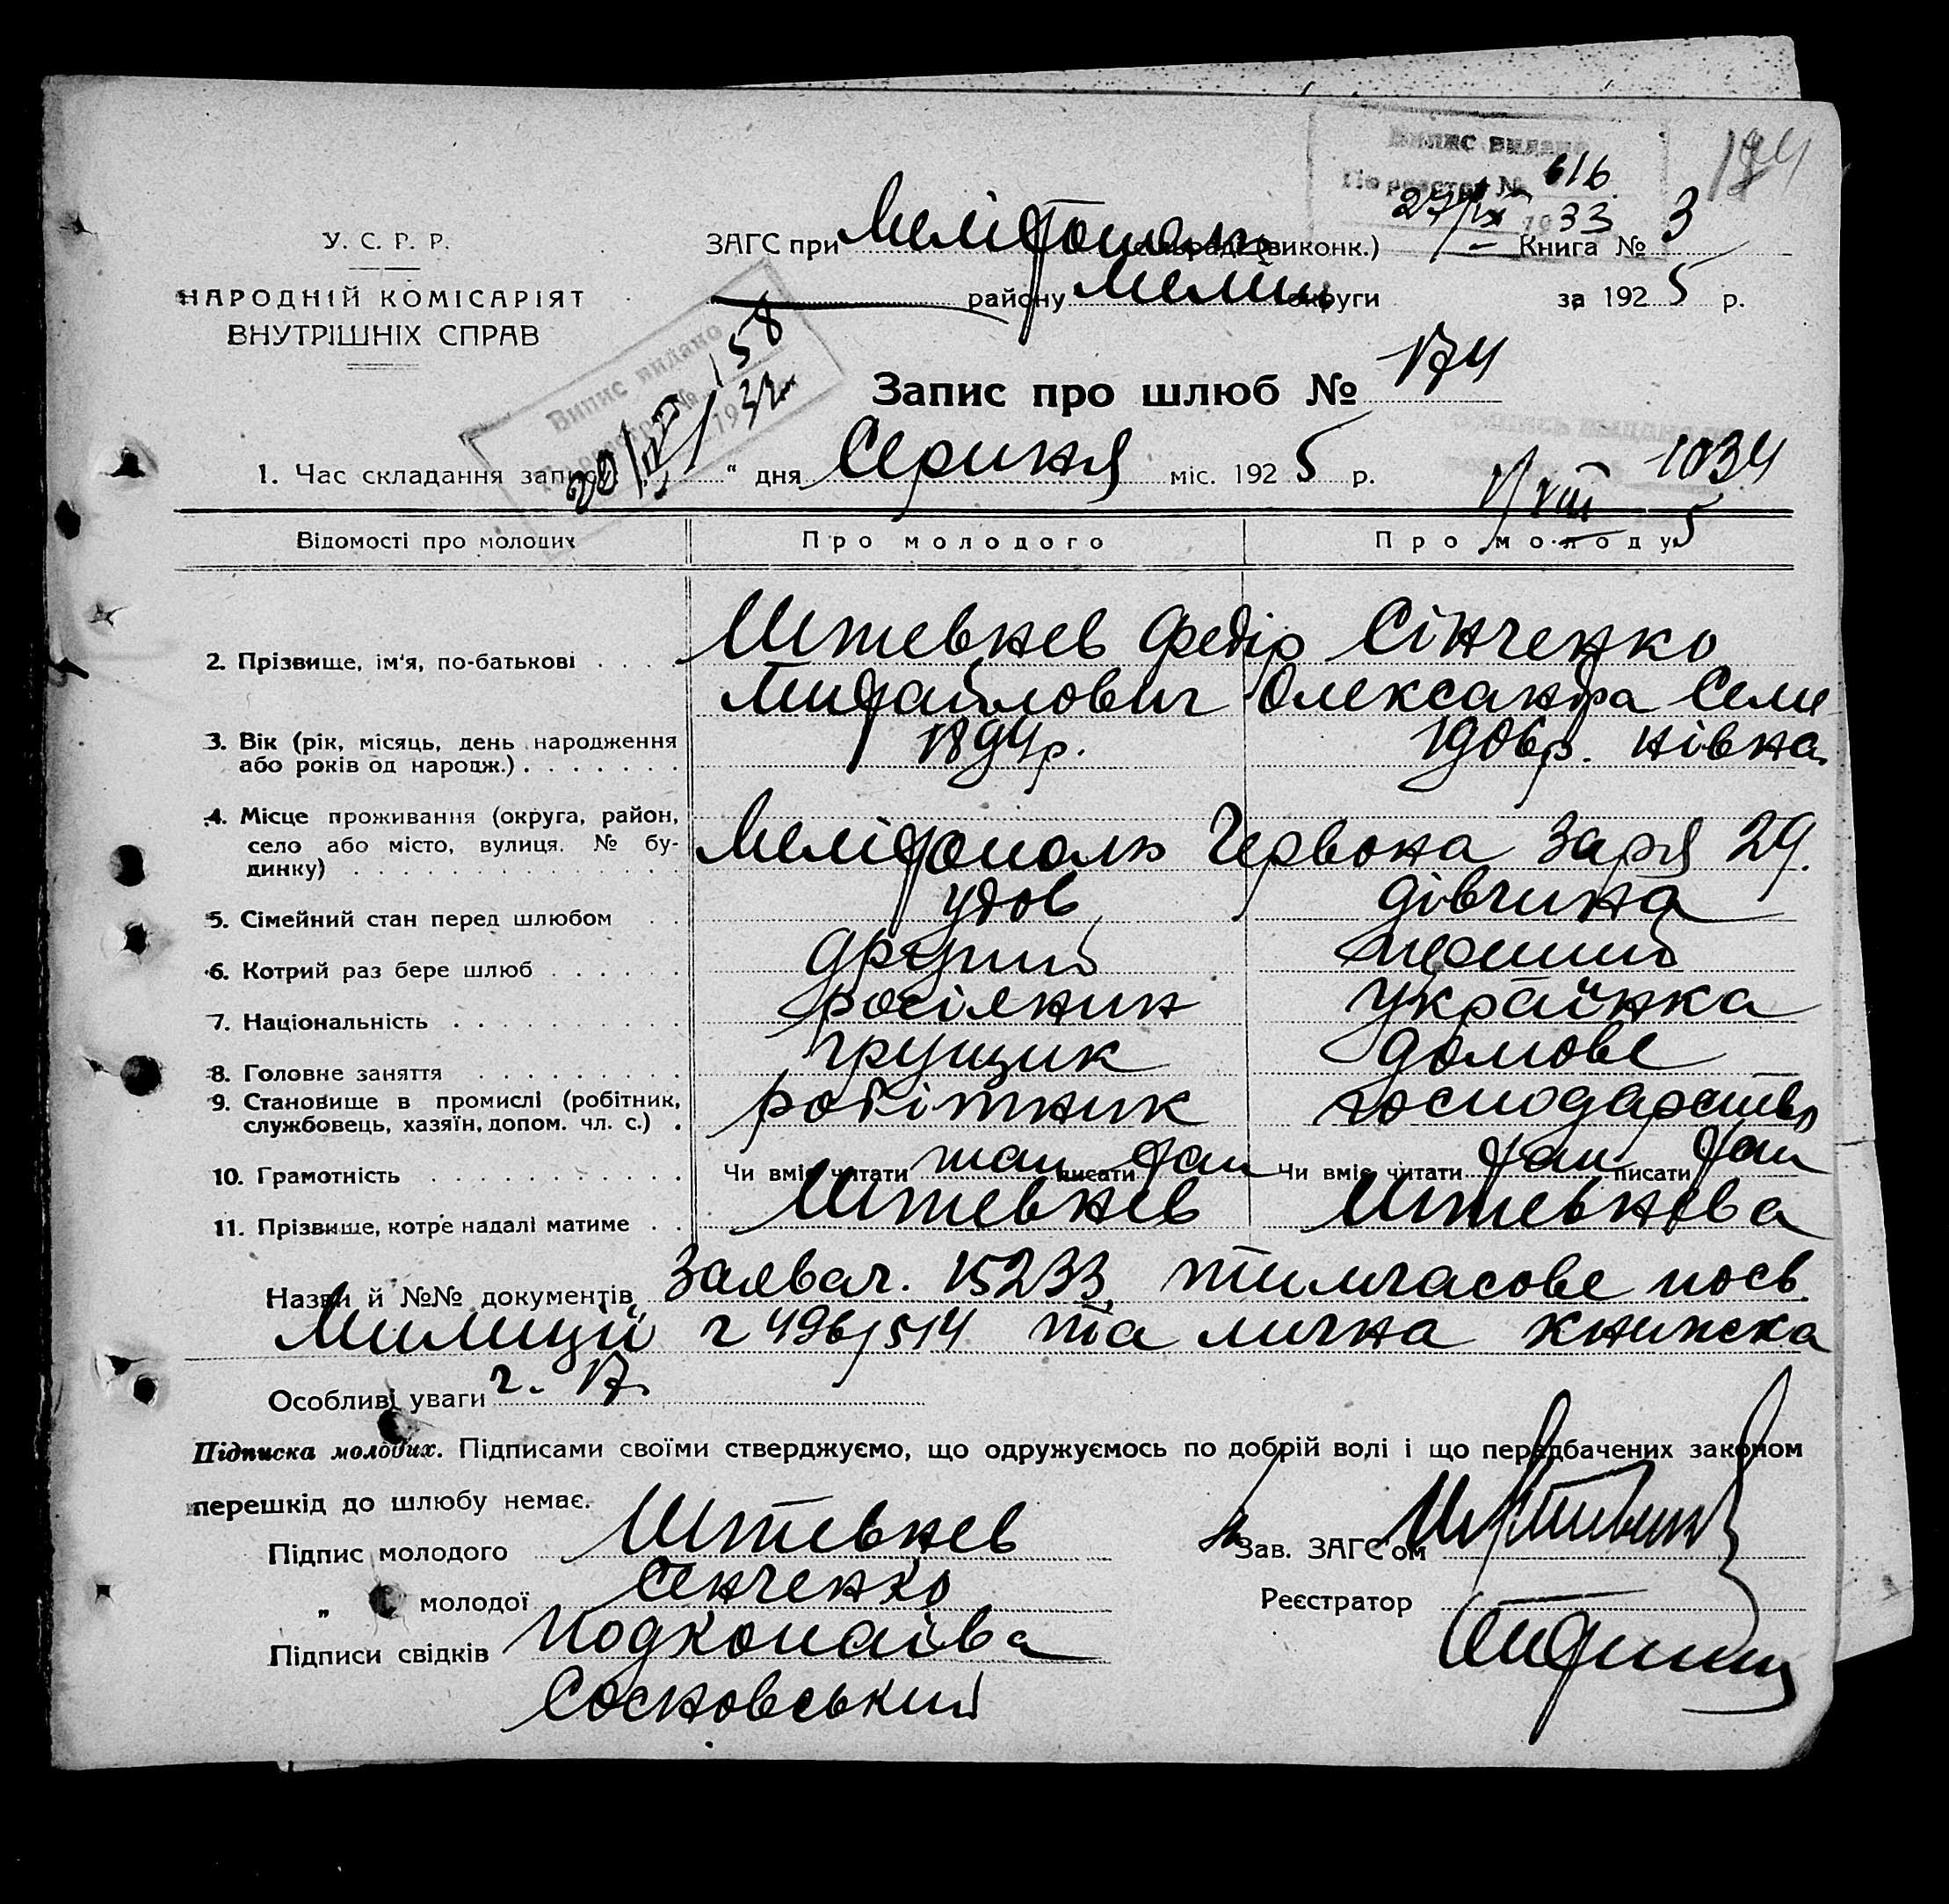 Випис видано
По реєстру № 616
27/IX 1933
174
У. С. Р. Р.
НАРОДНІЙ КОМІСАРІЯТ
ВНУТРІШНІХ СПРАВ
ЗАГС при Мелітополь виконк.) Книга № 3
району Меліт округи за 1925 р.
Випис видано
№ 158
1932
Запис про шлюб № 174
1. Час складання запису " дня Серпня міс. 1925 р.
1034
Відомості про молодих Про молодого Про молоду
2. Прізвище, ім'я, по-батькові Штевнев Федір Сінченко
Михайлович Олександра Семе
3. Вік (рік, місяць, день народження 1894р. 1906р. нівна
або років од народж.)
4. Місце проживання (округа, район,
село або місто, вулиця. № бу- Мелітополь Червона Заря 29.
динку)
5. Сімейний стан перед шлюбом удов дівчина
6. Котрий раз бере шлюб другий перший
7. Національність росіянин Українка
8. Головне заняття грущик домове
9. Становище в промислі (робітник, робітник господарство
службовець, хазяїн, допом. чл. с.)
10. Грамотність Чи вміє читати так писати так Чи вміє читати так писати так
11. Прізвище, котре надалі матиме Штевнев Штевнева
Назви й №№ документів Заявач. 15233, тимчасове посв.
Милиції ч 496/514 та лична книжска
Особливі уваги ч. 17.
Підписка молодих. Підписами своїми стверджуємо, що одружуємось по добрій волі і що передбачених законом
перешкід до шлюбу немає.
Підпис молодого Штевнев Зав. ЗАГС'ом
„ молодої Сенченко Реєстратор
Підписи свідків Подкопаєва
Сосновський